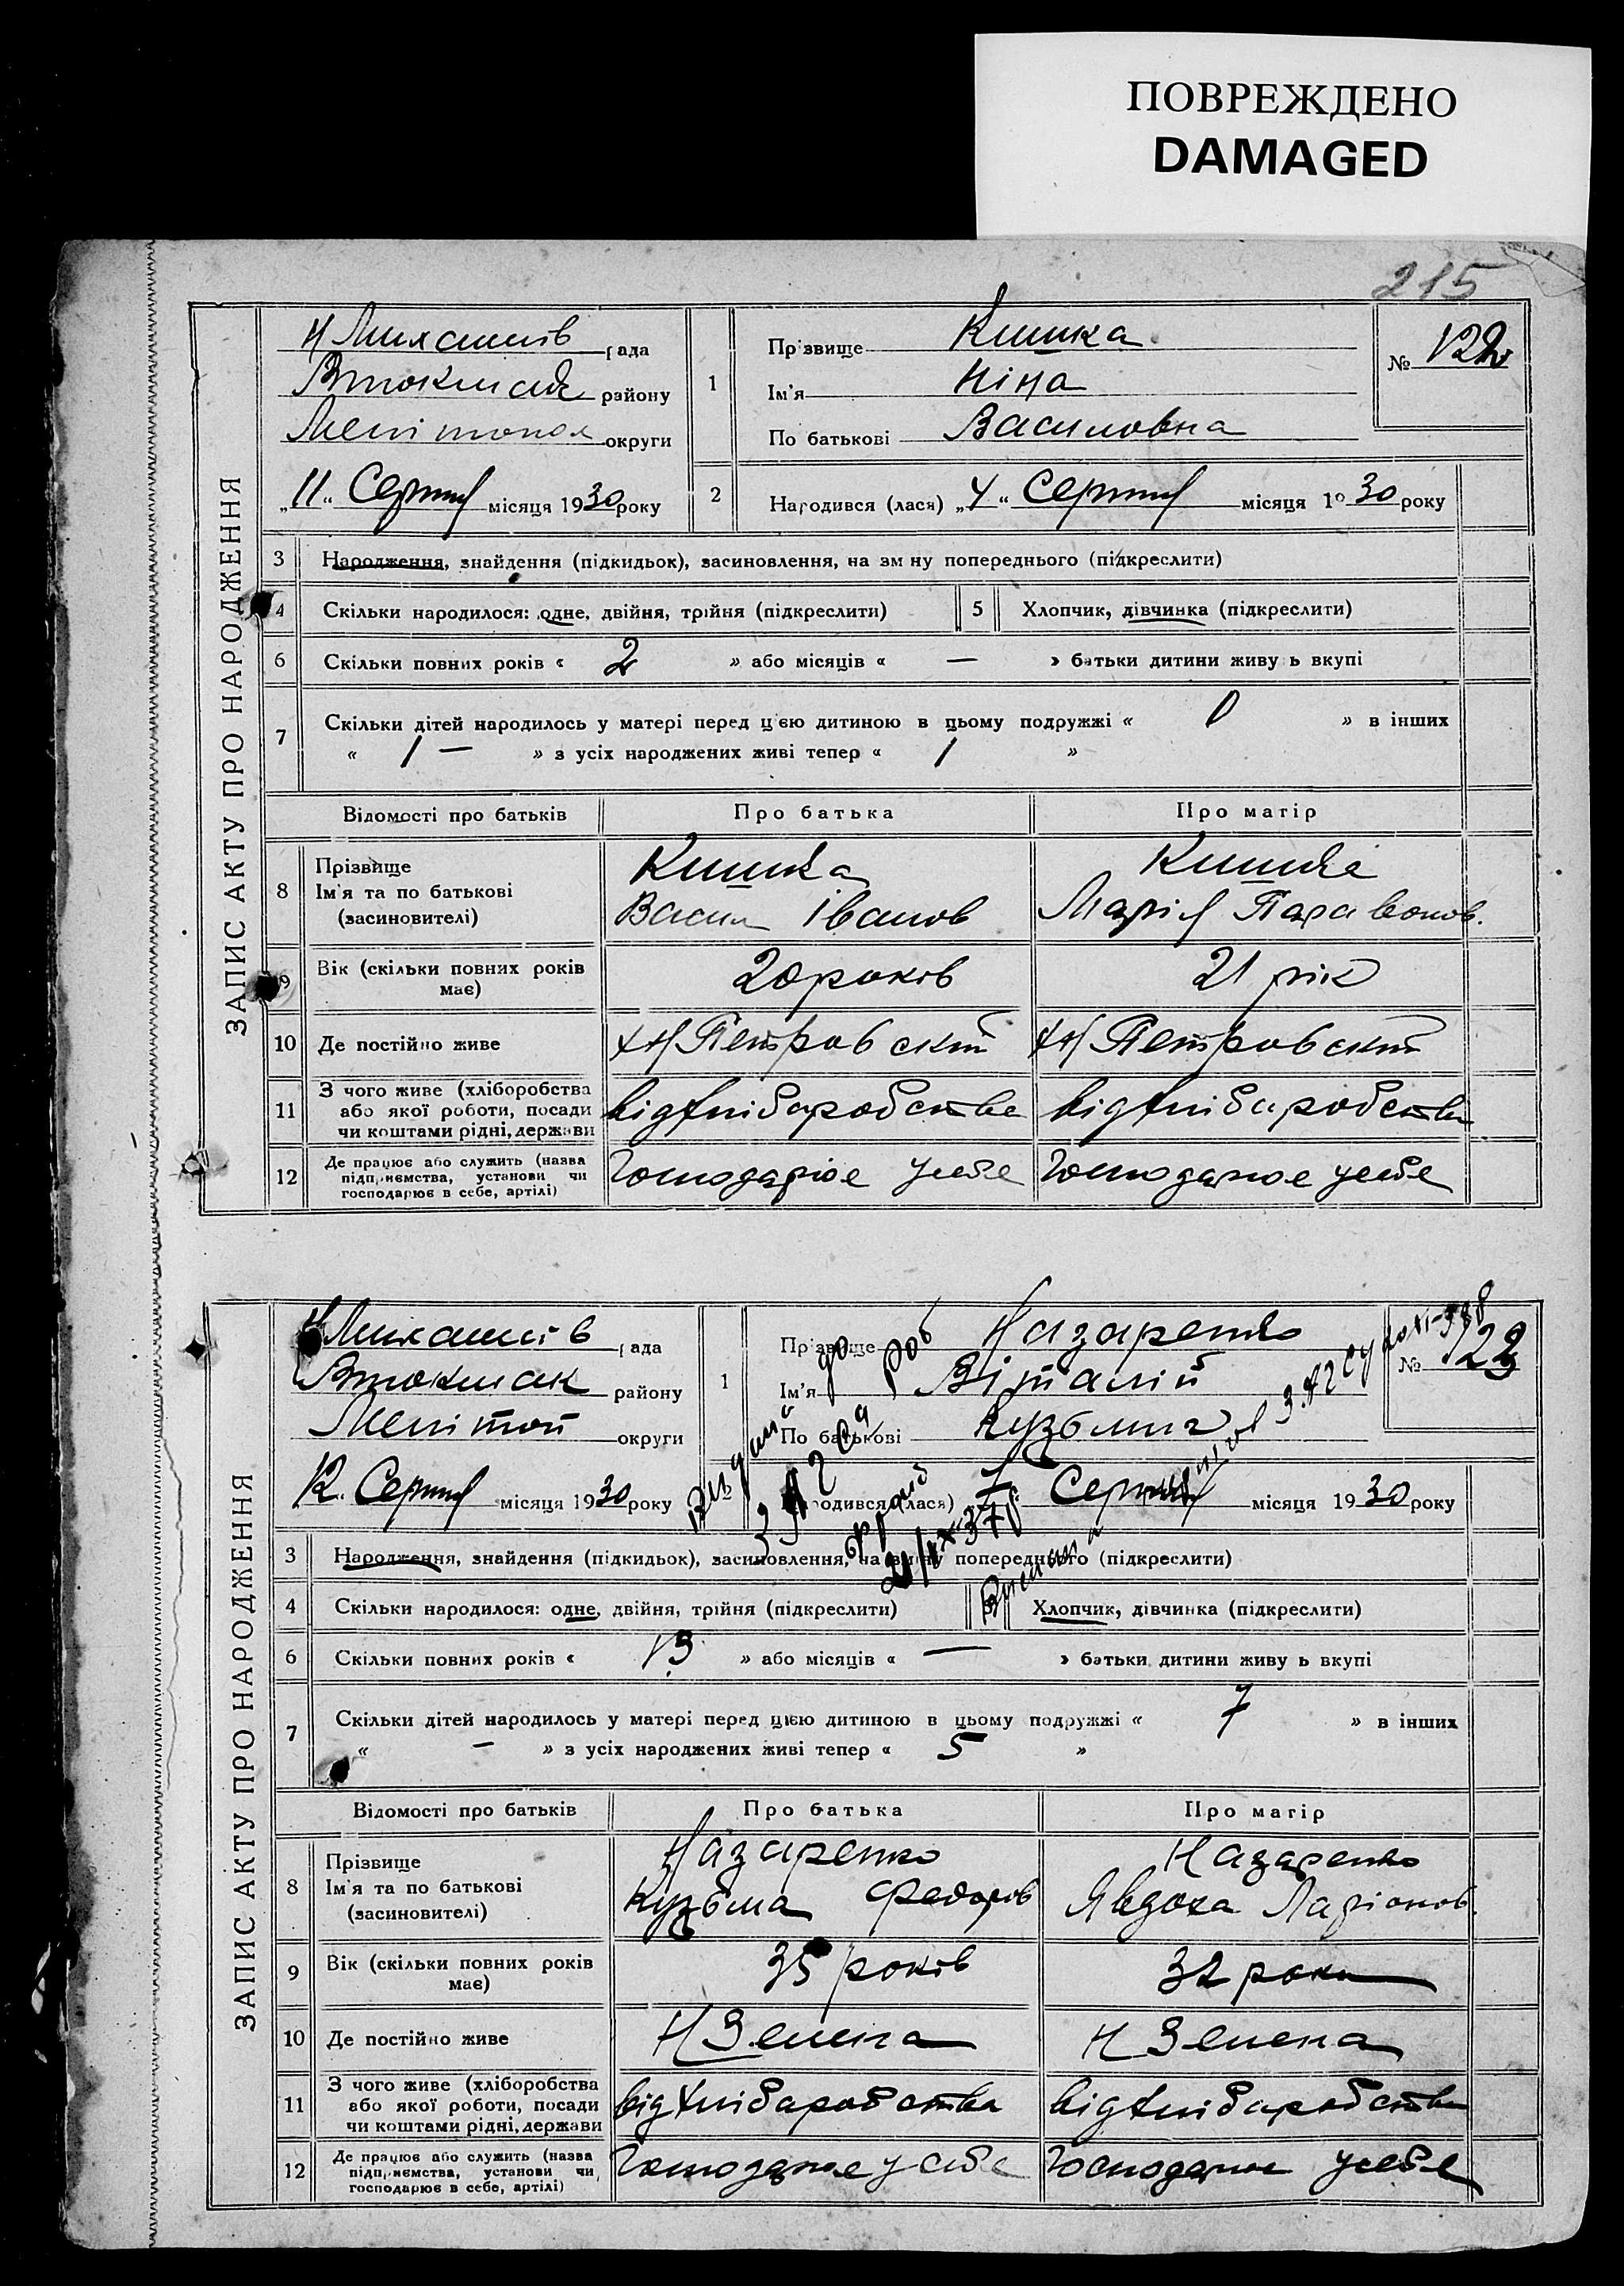 ПОВРЕЖДЕНО
DAMAGED
215
ЗАПИС АКТУ ПРО НАРОДЖЕННЯ
Н Михайлів рада
Втокмак району
Мелітопол округи
„11“ Серпня місяця 1930 року
1
Прізвище Кишка
Ім'я Ніна
По батькові Василовна
№ 122
2 Народився (лася) „4“ Серпня місяця 1930 року
3 Народження, знайдення (підкидьок), засиновлення, на зм ну попереднього (підкреслити)
4 Скільки народилося: одне, двійня, трійня (підкреслити)
5 Хлопчик, дівчинка (підкреслити)
6 Скільки повних років « 2 » або місяців « — » батьки дитини живу ь вкупі
7 Скільки дітей народилось у матері перед цією дитиною в цьому подружжі « » в інших
« 1 — » з усіх народжених живі тепер « 1 »
Відомості про батьків Про батька Про матір
8 Прізвище
Ім'я та по батькові
(засиновителі)
Кишка
Васил Іванов
Кишка
Марія Парамонов.
9 Вік (скільки повних років
має)
20 років
21 рік
10 Де постійно живе
хН Петровский
хН Петровский
11 З чого живе (хліборобства
або якої роботи, посади
чи коштами рідні, держави
від хліборобства
від хліборобства
12 Де працює або служить (назва
підприємства, установи чи
господарює в себе, артілі)
Господарює у себе
Господарює у себе
ЗАПИС АКТУ ПРО НАРОДЖЕННЯ
Н Михайлів рада
Втокмак району
Меліпол округи
12. Серпня місяця 1930 року
1
Прізвище Назаренко
Ім'я Віталій
По батькові Кузьмич
№ 123
Народився (лася) 7 Серпня місяця 1930 року
3 Народження, знайдення (підкидьок), засиновлення, на зміну попереднього (підкреслити)
4 Скільки народилося: одне, двійня, трійня (підкреслити)
Хлопчик, дівчинка (підкреслити)
6 Скільки повних років « 13 » або місяців « — » батьки дитини живу ь вкупі
7 Скільки дітей народилось у матері перед цією дитиною в цьому подружжі « 7 » в інших
« — » з усіх народжених живі тепер « 5 »
Відомості про батьків Про батька Про матір
8 Прізвище
Ім'я та по батькові
(засиновителі)
Назаренко
Кузьма Федоров
Назаренко
Явдоха Ларіонов.
9 Вік (скільки повних років
має)
35 років
32 роки
10 Де постійно живе
Н Зелена
Н Зелена
11 З чого живе (хліборобства
або якої роботи, посади
чи коштами рідні, держави
від хліборобства
від хліборобства
12 Де працює або служить (назва
підприємства, установи чи
господарює в себе, артілі)
Господарює у себе
Господарює у себе